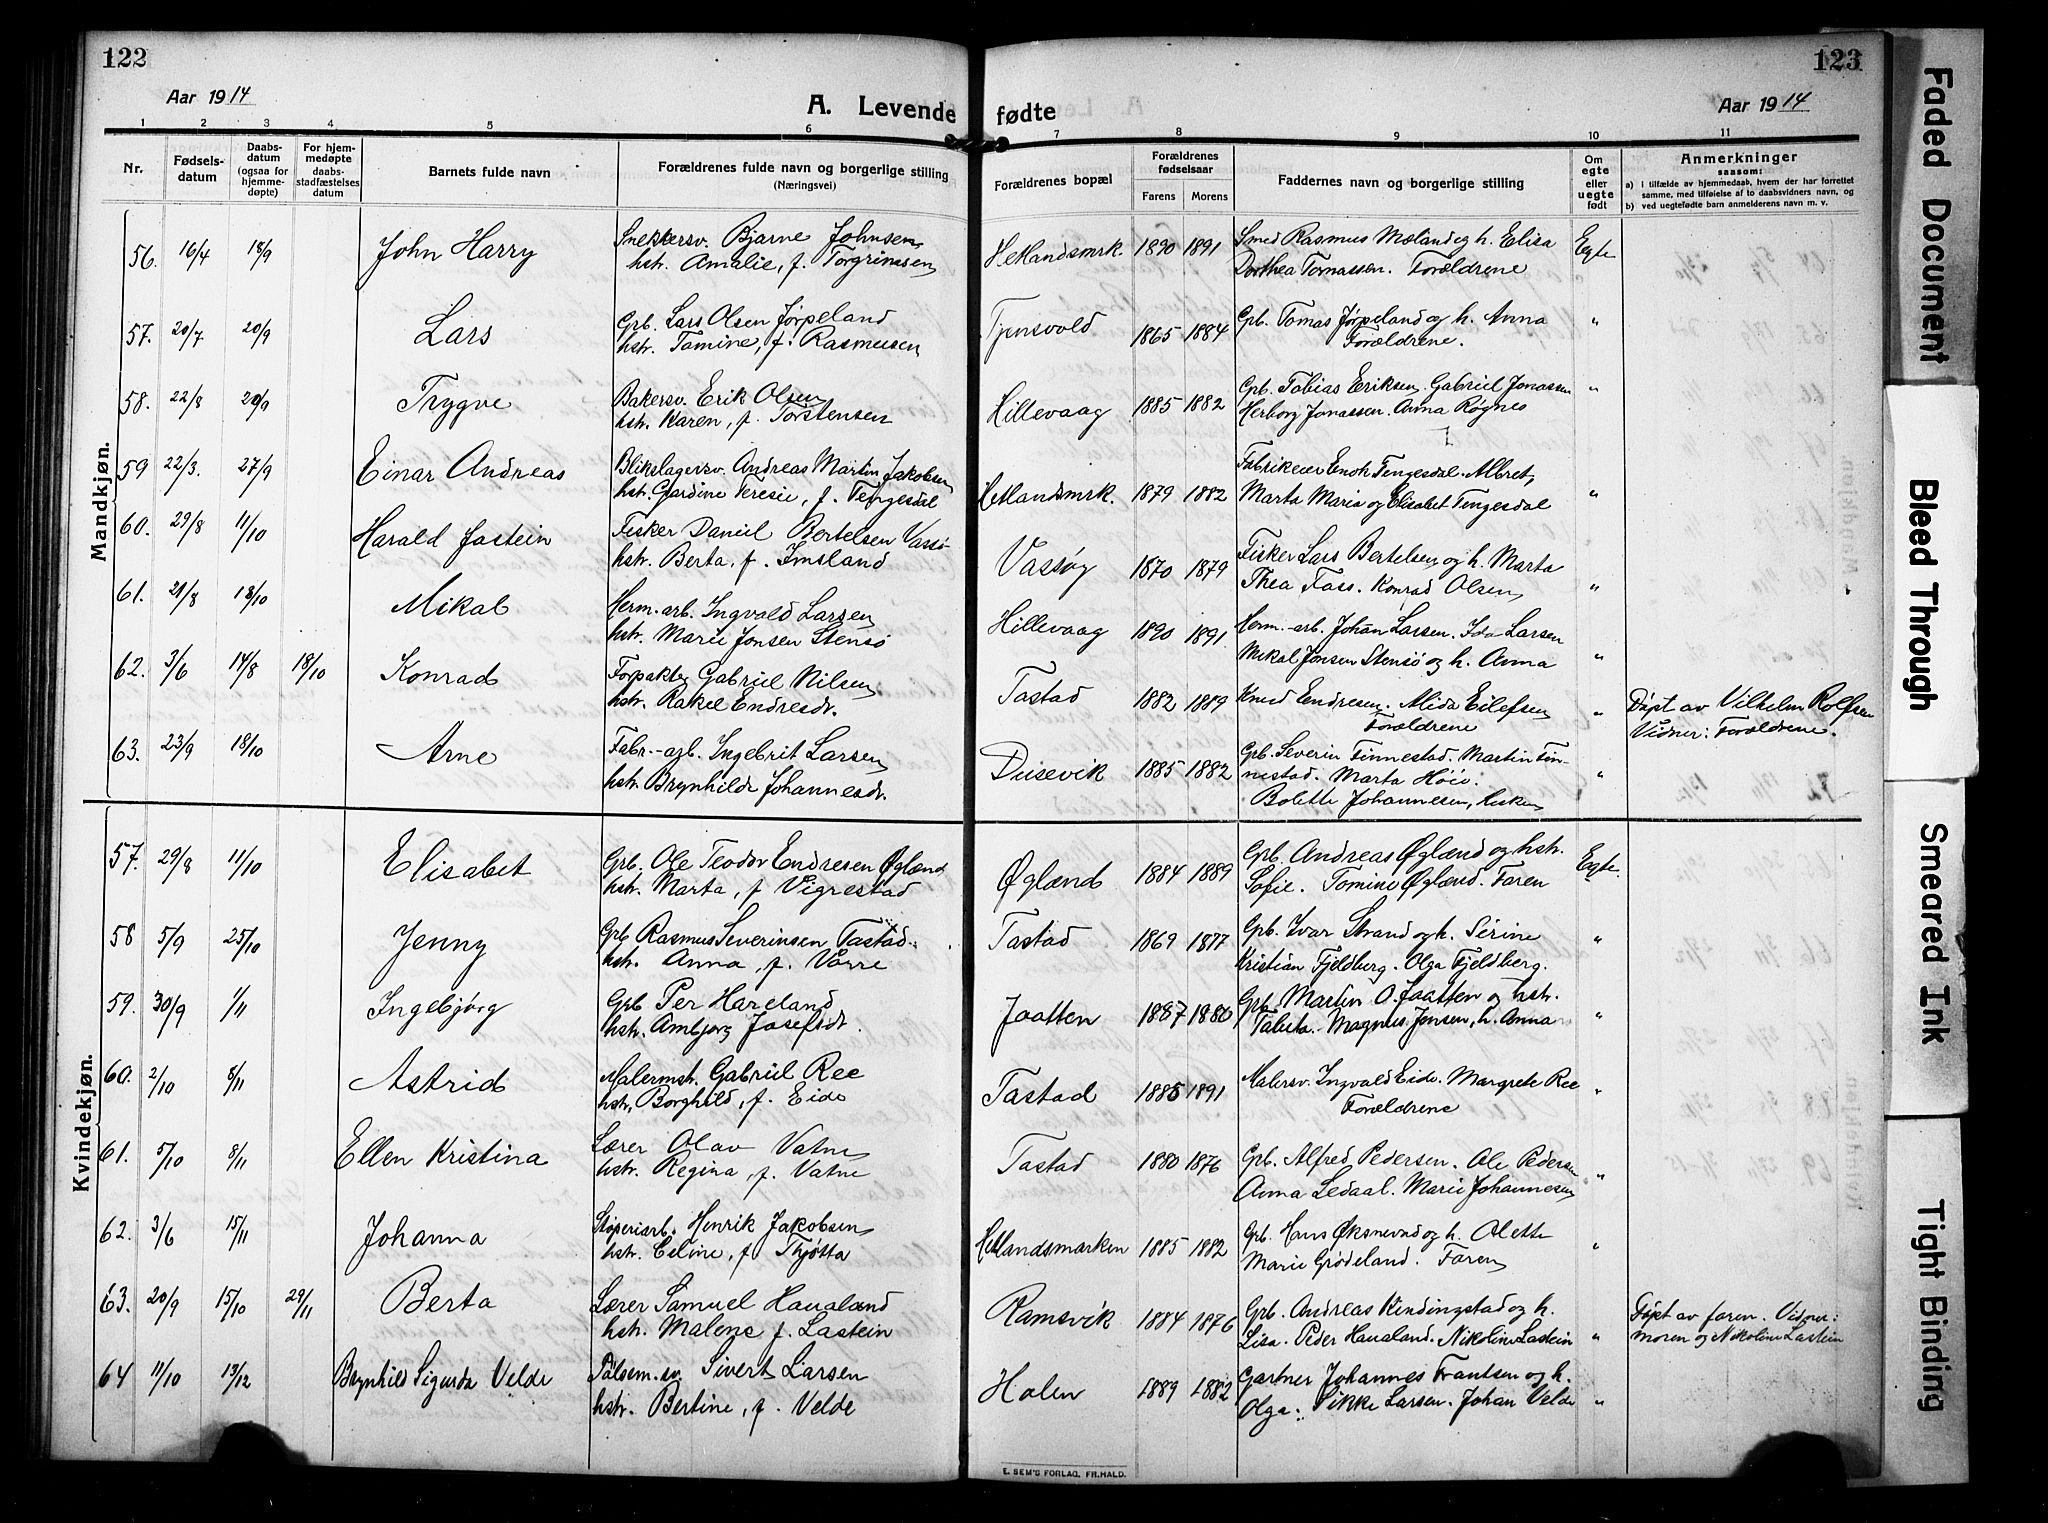 122
Aar 1914
A. Levende
1 2 3 4 5 6
Nr. Fødsels-datum Daabs-datum (ogsaa for hjemme-døpte) For hjem-medøpte daabs-stadfæstelses datum Barnets fulde navn Forældrenes fulde navn og borgerlige stilling (Næringsvei)
Mandkjøn.
56. 16/4 18/9 John Harry Snekkersv. Bjarne Johnsen
hstr. Amalie, f. Torgrimsen
57. 20/7 20/9 Lars Grb. Lars Olsen Jørpeland
hstr. Tomine, f. Rasmusen
58. 22/8 20/9 Trygve Bakersv. Erik Olsen
hstr. Karen, f. Torstensen
59 22/3. 27/9 Einar Andreas Blikslagersv. Andreas Martin Jakobsen
hstr. Gjardine Teresie, f. Tengesdal
60. 29/8 11/10 Harald Jostein Fisker Daniel Bertelsen Vassø
hstr. Berta, f. Imsland
61. 21/8 18/10 Mikal Herm. arb. Ingvald Larsen
hstr. Marie Jonsen Stensø
62. 3/6 14/8 18/10 Konrad Forpakter Gabriel Nilsen
hstr. Rakel Endresdr.
63. 23/9 18/10 Arne Fabr.-arb. Ingebrit Larsen
hstr. Brynhilde Johannesdr.
Kvindekjøn.
57. 29/8 11/10 Elisabet Grb. Ole Teodor Endresen Øglænd
hstr. Marta, f. Vigrestad
58 5/9 25/10 Jenny Grb Rasmus Severinsen Tastad
hstr. Anna, f. Varre
59. 30/9 1/11 Ingebjørg Grb Per Hareland
hstr. Ambjørg Josefsdr.
60. 2/10 8/11 Astrid Malermstr. Gabriel Ree
hstr. Borghild, f. Eide
61. 5/10 8/11 Ellen Kristina Lærer Olav Vatne
hstr. Regina, f. Vatne
62. 3/6 15/11 Johanna Støperiarb. Henrik Jakobsen
hstr. Celine, f. Thjøtta
63. 20/9 15/10 29/11 Berta Lærer Samuel Haualand
hstr. Malene f. Lastein
64 11/10 13/12 Brynhild Sigurda Velde Pølsem.sv. Sivert Larsen
hstr. Bertine, f. Velde
123
Aar 1914
fødte
7 8 9 10 11
Forældrenes bopæl Forældrenes fødselsaar Farens Morens Faddernes navn og borgerlige stilling Om egte eller uegte født Anmerkninger saasom:
a) i tilfælde av hjemmedaab, hvem der har forrettet samme, med tilføielse af to daabsvidners navn, og
b) ved uegtefødte barn anmelderens navn m. v.
Hetlandsmrk. 1890 1891 Smed Rasmus Mæland og h. Elisa Egte
Dorthea Tomassen. Forældrene
Tjensvold 1865 1884 Grb. Tomas Jørpeland og h. Anna "
Forældrene.
Hillevaag 1885 1882 Grb. Tobias Eriksen. Gabriel Jonassen "
Herborg Jonassen. Anna Røgnes
Hetlandsmrk. 1879 1882 Fabrikeier Enok Tengesdal. Albret,
Marta Maria og Elisabet Tengesdal "
Vassøy 1870 1879 Fisker Lars Bertelsen og h. Marta
Thea Foss. Konrad Olsen "
Hillevaag 1890 1891 Herm.-arb. Johan Larsen. Ida Larsen
Mikal Jonsen Stensø og h. Anna "
Tastad 1882 1889 Knud Endresen. Alida Eilefsen " Døpt av Vilhelm Rolfsen
Forældrene Vidner: Forældrene.
Dusevik 1885 1882 Grb. Severin Finnestad. Martin Fin-
nestad. Marta Høie. "
Bolette Johannesen,
Øglænd 1884 1889 Grb. Andreas Øglænd og hstr. Egte.
Sofie. Tomine Øglænd. Faren
Tastad 1869 1877 Grb. Ivar Strand og h. Serine "
Kristian Fjeldberg. Olga Fjeldberg.
Jaatten 1887 1880 Grb. Martin O. Jaatten og hstr.
Tabita. Magnus Jonsen, h. Anna "
Tastad 1885 1891 Malersv. Ingvald Eide. Margrete Ree "
Forældrene
Tastad 1880 1876 Grb. Alfred Pedersen. Ole Pedersen
Anna Ledaal. Marie Johannesen "
Hetlandsmarken 1885 1882 Grb. Hans Øksnevad og h. Olette
Marie Grødeland. Faren "
Ramsvik 1884 1876 Grb. Andreas Kindingstad og h. Døpt av faren. Vidner:
Lisa. Peder Haualand. Nikoline Lastein " moren og Nikoline Lastein
Holen 1889 1882 Gartner Johannes Frantsen og h.
Olga. Rikke Larsen. Johan Velde "
E. SEM'S FORLAG, FR.HALD.
Faded Document
Bleed Through
Smeared Ink
Tight Binding